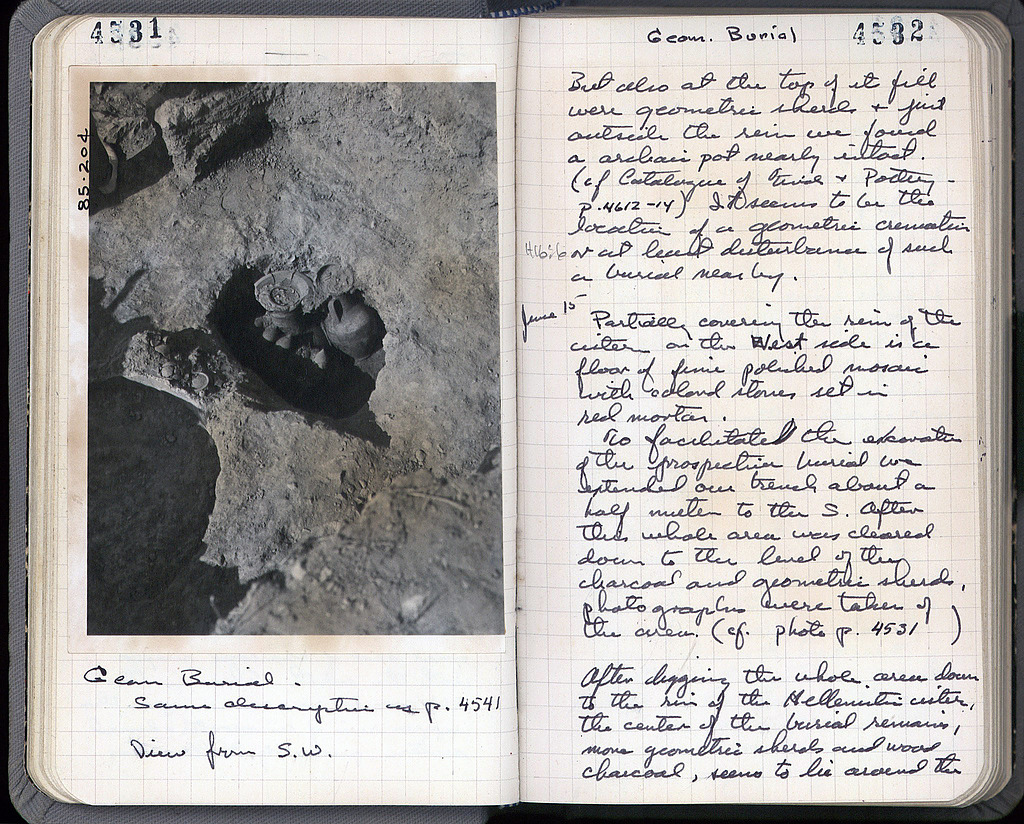 4531
85·204
Geom Burial.
Same description as p. 4541
View from S.W.
4532
Geom. Burial
But also at the top of its fill
were geometric sherds + just
outside the rim we found
a archaic pot nearly intact.
(cf Catalogue of Finds + Pottery -
p. 4612-14) It seems to be the
location of a geometric cremation
or at least disturbance of such
a burial nearby.
June 15
Partially covering the rim of the
cistern on the West side is a
floor of fine polished mosaic
with colored stones set in
red mortar.
To facilitated the excavation
of the prospective burial we
extended our trench about a
half meter to the S. After
this whole area was cleared
down to the level of the
charcoal and geometric sherds,
photographs were taken of
the area. (cf. photo p. 4531 )
After digging the whole area down
to the rim of the Hellenistic cistern,
the center of the burial remains,
more geometric sherds and wood
charcoal, seems to lie around the